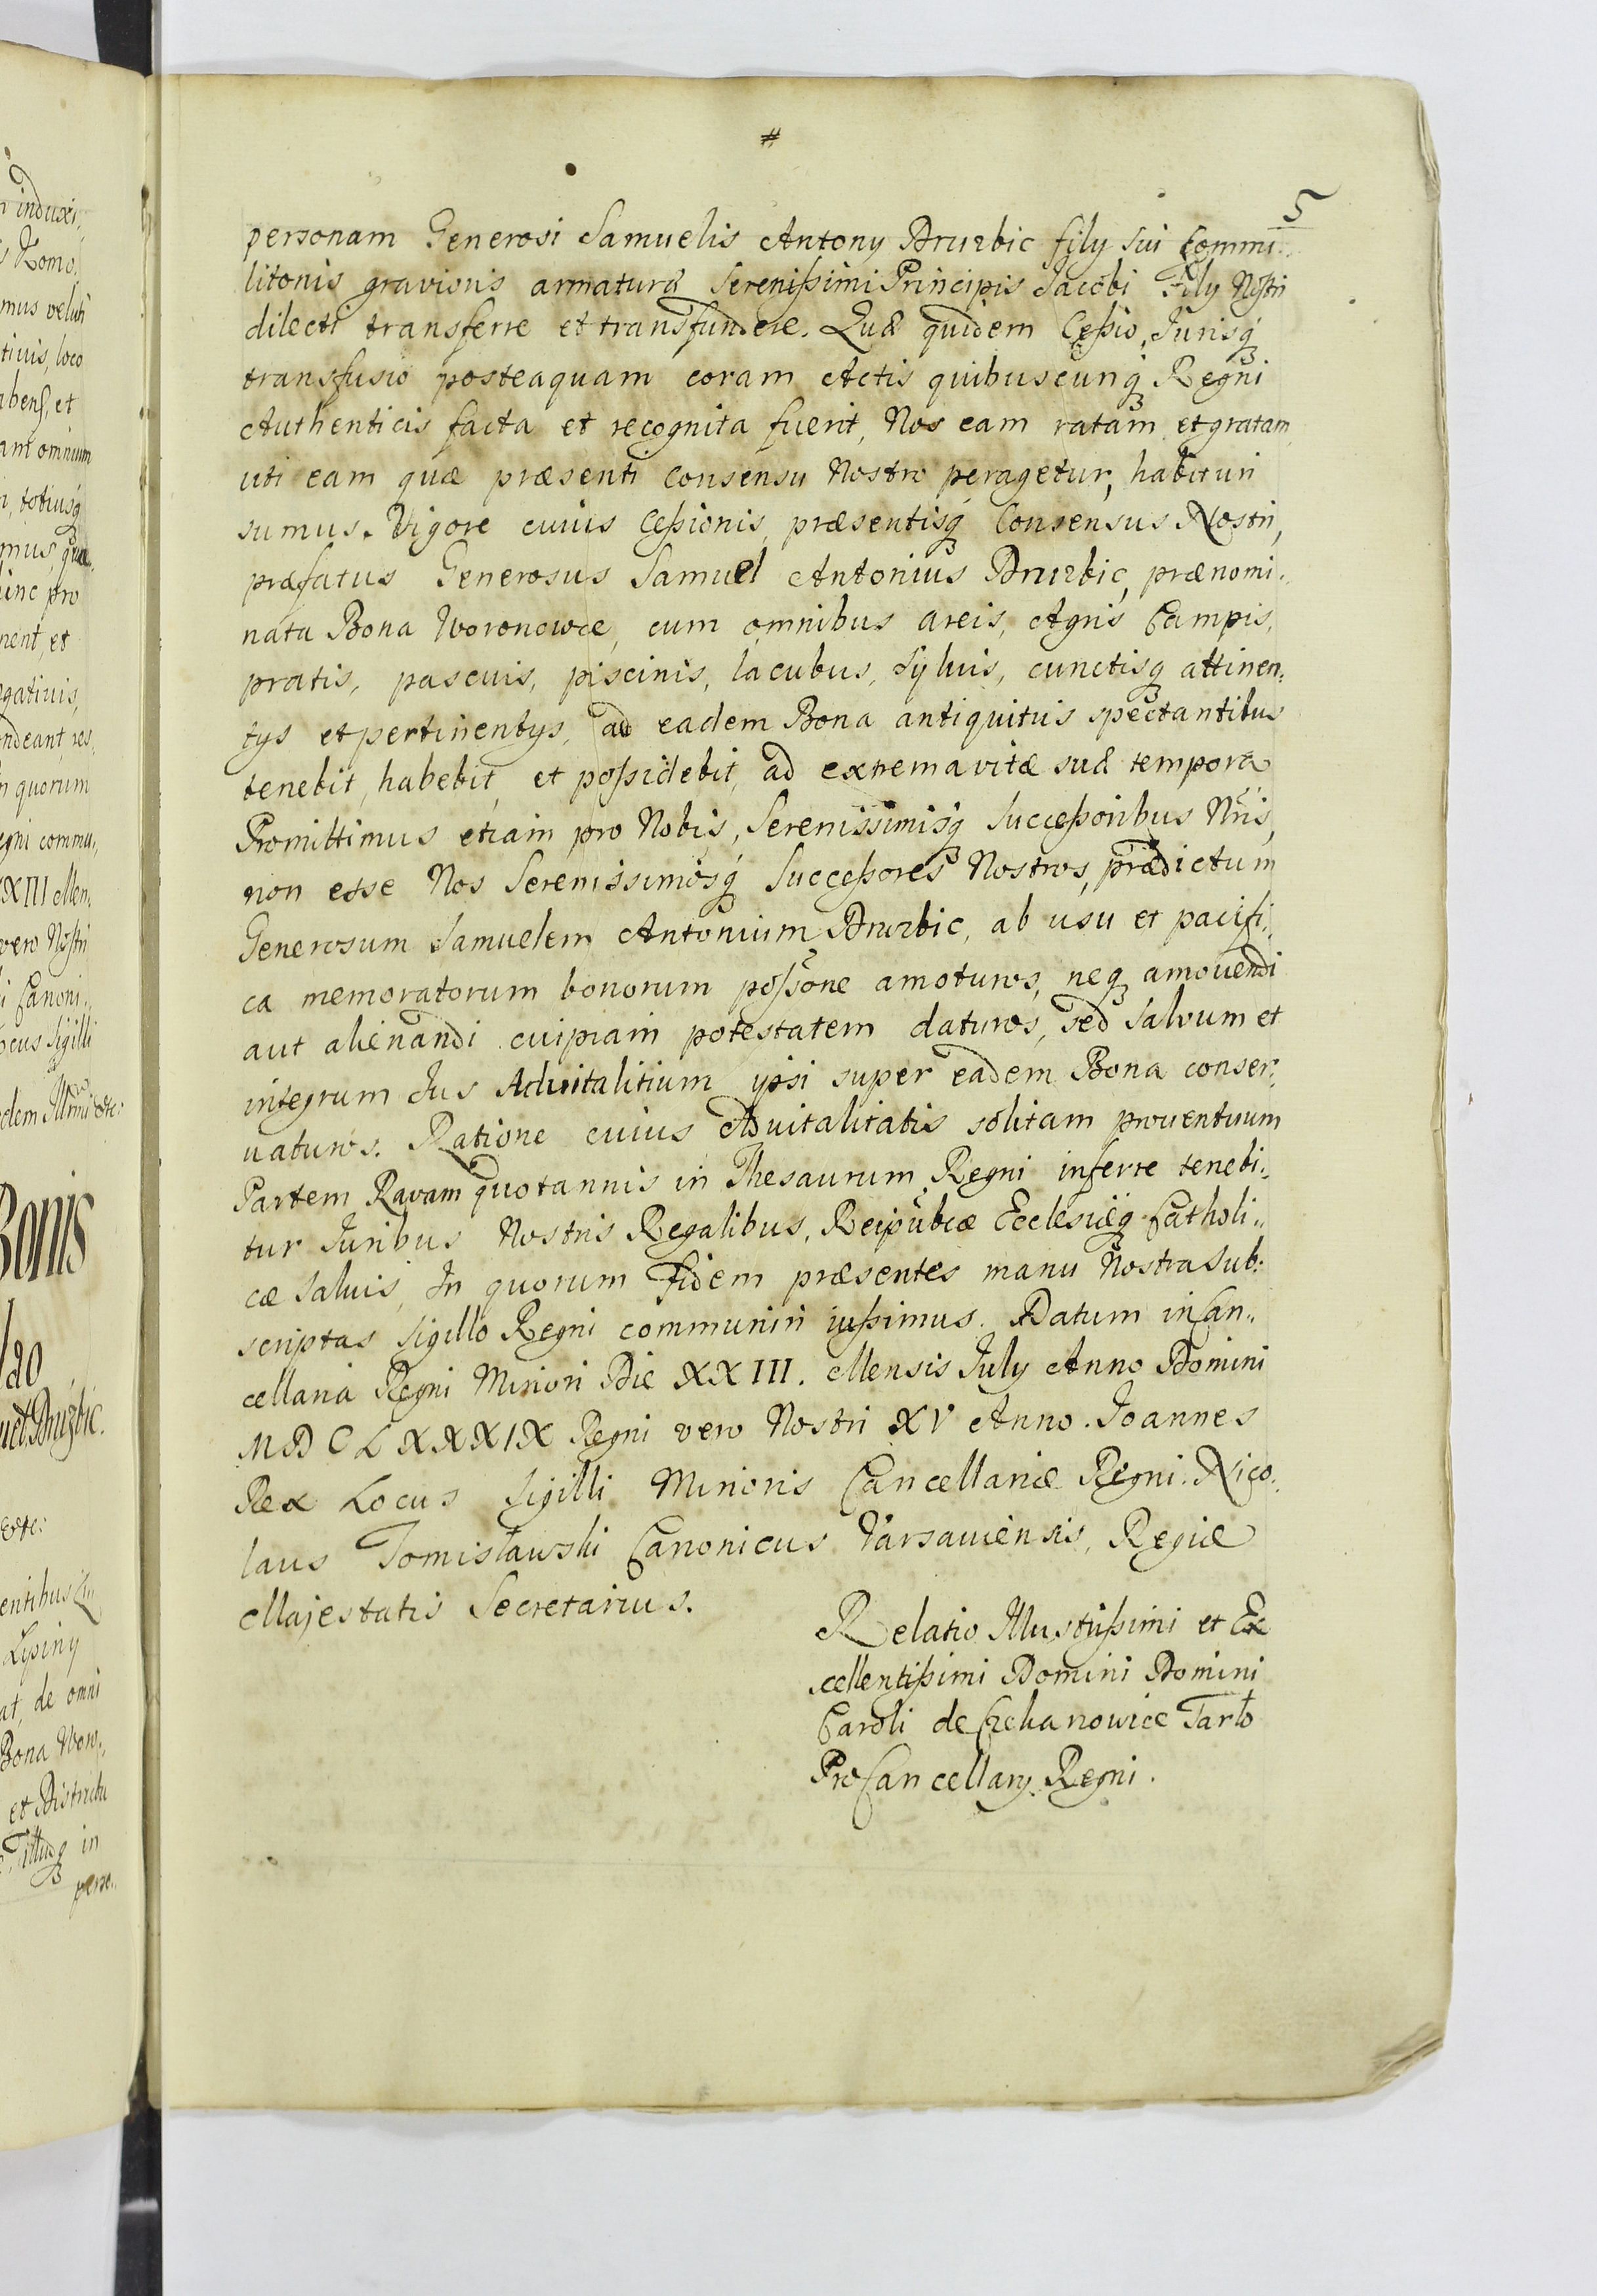 #
5
personam Generosi Samuelis Antony Druzbic fily sui Commi:
litonis gravioris armaturæ Serenissimi Principis Jacobi Fily Nostri
dilecti transferre et transfundere. Quæ quidem Cessio, Jurisq
transfusio posteaquam coram Actis quibuscunq Regni
Authenticis facta et recognita fuerit, Nos eam ratam et gratam
uti eam quæ præsenti Consensu Nostro peragetur, habituri
sumus. Vigore cuius Cessionis, præsentisq Consensus Nostri,
præfatus Generosus Samuel Antonius Druzbic, prænomi:
nata Bona Woronowce, cum omnibus areis, Agris Campis,
pratis, pascuis, piscinis, lacubus, Sylvis, cunctisq attinen:
tys et pertinentys, ad eadem Bona antiquitus spectantibus
tenebit, habebit, et possidebit, ad extrema vitæ suæ tempora
Promittimus etiam pro Nobis, Serenissimisq Successoribus Nris,
non esse Nos Serenissimosq Successores Nostros, prædictum
Generosum Samuelem Antonium Druzbic, ab usu et pacifi:
ca memoratorum bonorum possone amoturos, neq amovendi
aut alienandi cuipiam potestatem daturos, sed Salvum et
integrum Jus Advitalitium ipsi super eadem Bona conser:
uaturos. Ratione cuius Advitalitatis solitam proventuum
Partem Ravam quotannis in Thesaurum Regni inferre tenebi:
tur Juribus Nostris Regalibus, Reipublcæ Ecclesiæq Catholi:
cæ Salvis, In quorum Fidem præsentes manu Nostra Sub:
scriptas Sigillo Regni communiri iussimus. Datum in Can:
cellaria Regni Minori Die XXIII. Mensis July Anno Domini
MDCLXXXIX Regni vero Nostri XV Anno. Joannes
Rex Locus Sigilli Minoris Cancellariæ Regni. Nico:
laus Tomisławski Canonicus Varsaviensis, Regiæ
Majestatis Secretarius.
Relatio Illustrissimi et Ex
cellentissimi Domini Domini
Caroli de Czekanowice Tarło
ProCancellary Regni.